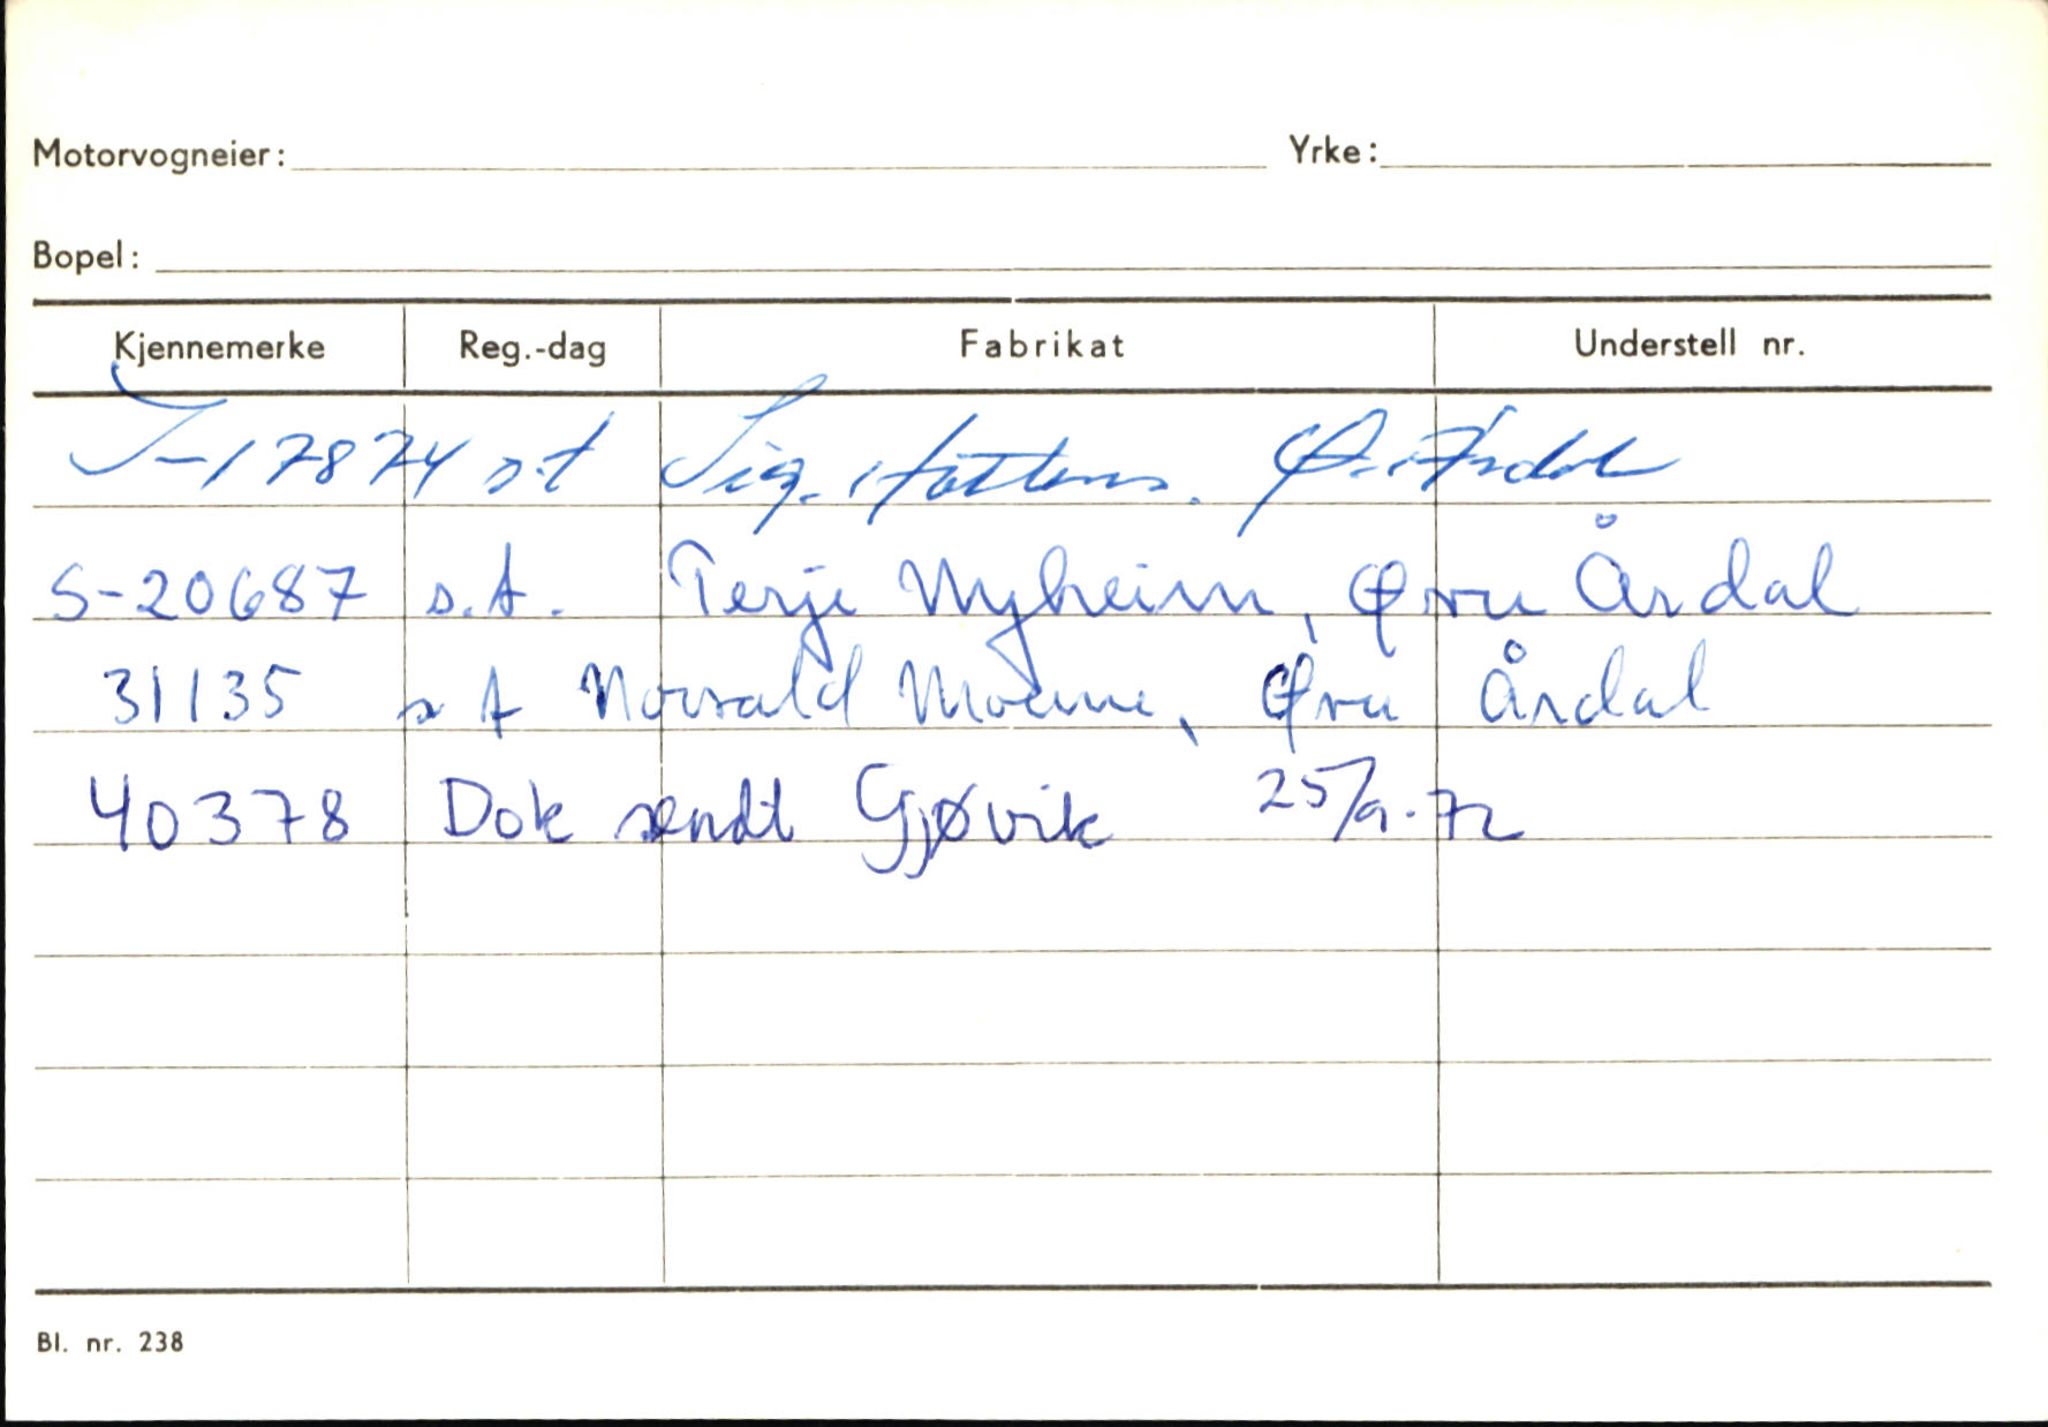 Motorvogneier: Yrke:
Bopel:
Kjennemerke Reg.-dag Fabrikat Understell nr.
-17874 s.t Sig. Ø. Årdal
S-20687 s.t. Terje Nyheim, Øvre Årdal
31135 s t Norvald Moene, Øvre Årdal
40378 Dok sendt Gjøvik 25/9-72
Bl. nr. 238